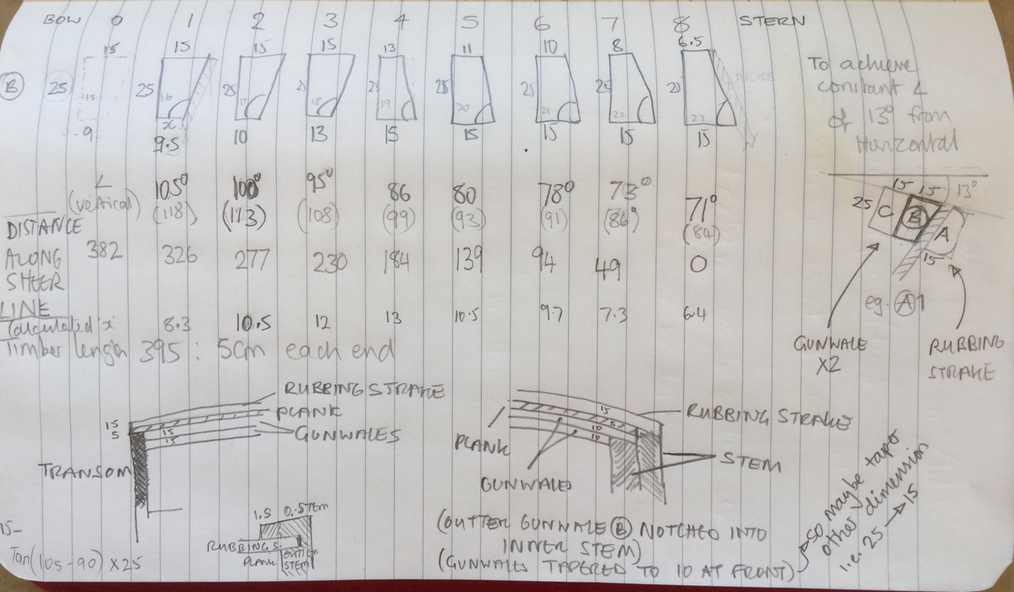 BOW 0 1 2 3 4 5 6 7 8 STERN
15 15 15 15 13 11 10 8 6.5
B 25 25 25 25 25 25 25 20
15 16 18 19 20 21 22 22 INSIDE
9 x
9.5 10 13 15 15 15 15 15
To achieve
constant ∠
of 13° from
Horizontal
∠ 105° 100° 95° 86 80 78° 73° 71°
(vertical) (118) (113) (108) (99) (93) (91) (86°) (84)
DISTANCE
ALONG 382 326 277 230 184 139 94 49 0
SHEER
LINE
Calculated x 8.3 10.5 12 13 10.5 9.7 7.3 6.4
timber length 395 : 5cm each end
15 15 13°
25 C B A
15
eg. A1
GUNWALE
X2
RUBBING
STRAKE
RUBBING STRAKE
PLANK
GUNWALES
15
5
15
15
TRANSOM
15
5
10
10
RUBBING STRAKE
PLANK
STEM
GUNWALES
1.5 0.5 STEM
RUBBING S.
PLANK
OUTTER
STEM
(OUTTER GUNWALE B NOTCHED INTO
INNER STEM)
(GUNWALES TAPERED TO 10 AT FRONT)
SO maybe taper
other dimension
i.e. 25 → 15
15-
Tan(105-90) X25